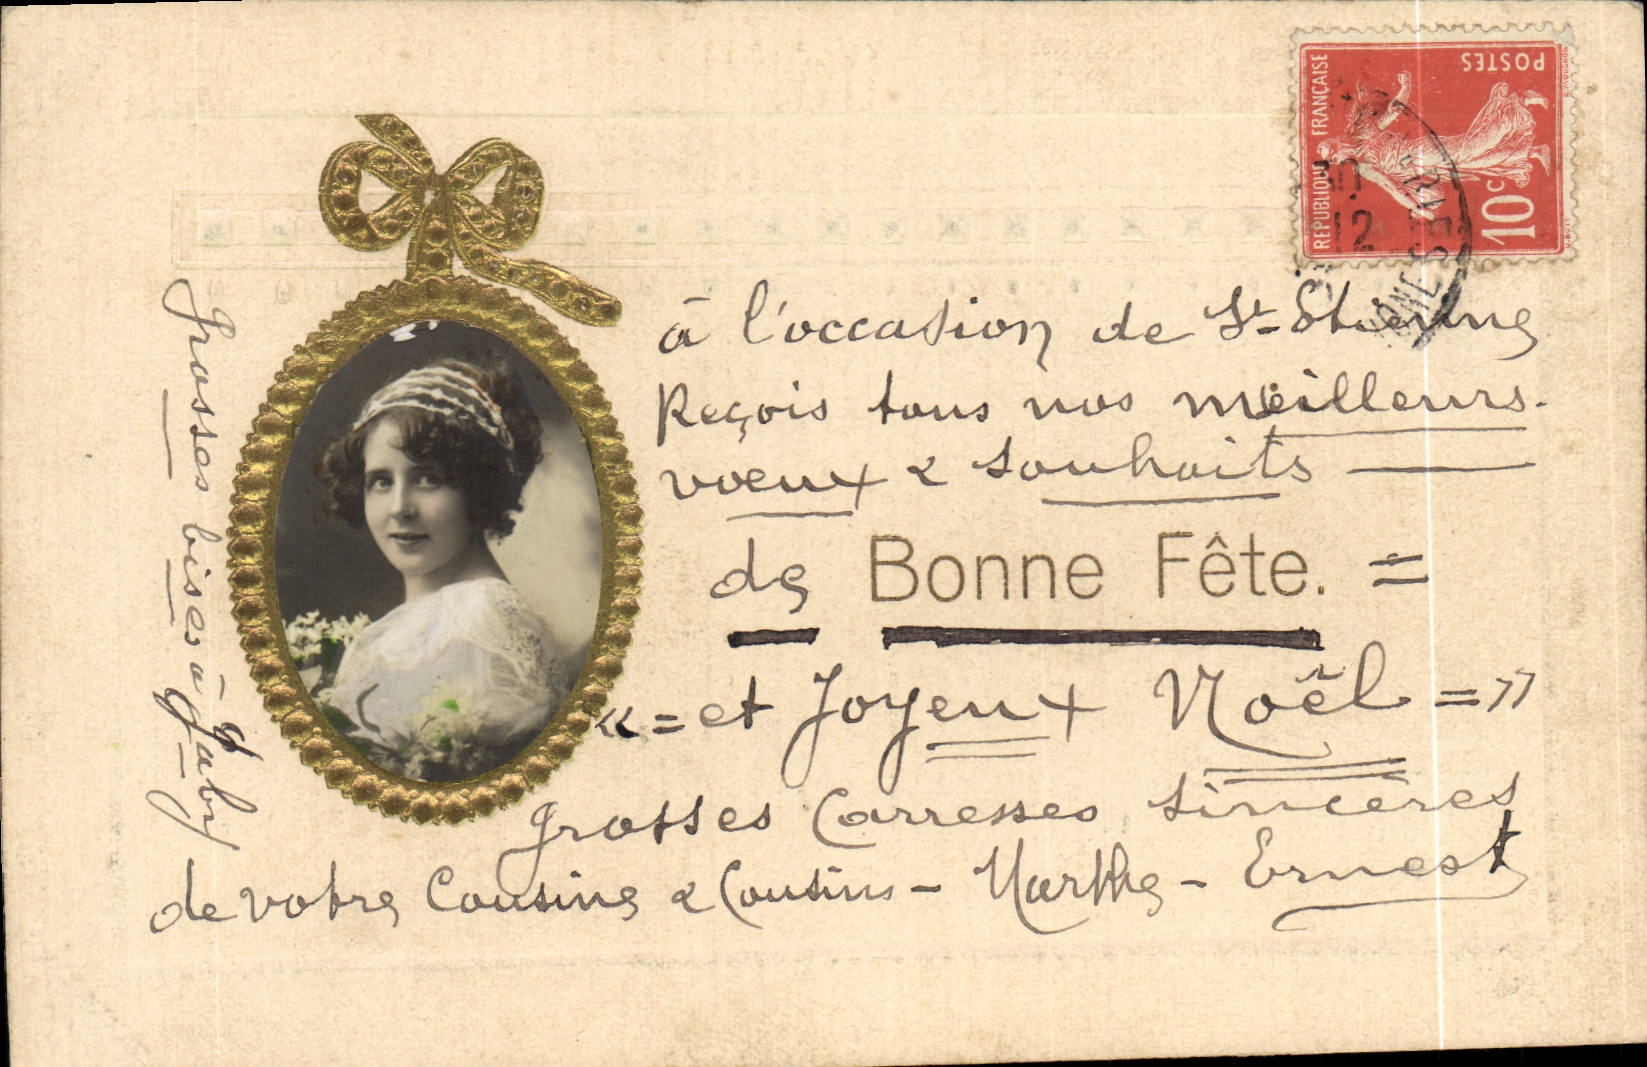 à l'occasion de St-Etienne
Reçois tous nos meilleurs
voeux & souhaits
de Bonne Fête. =
«=et Joyeux Noël=»
grosses Carresses sincères
de votre Cousine & Cousins - Marthe - Ernest
Grosses bises à Gaby
REPUBLIQUE FRANÇAISE
POSTES
10c
12